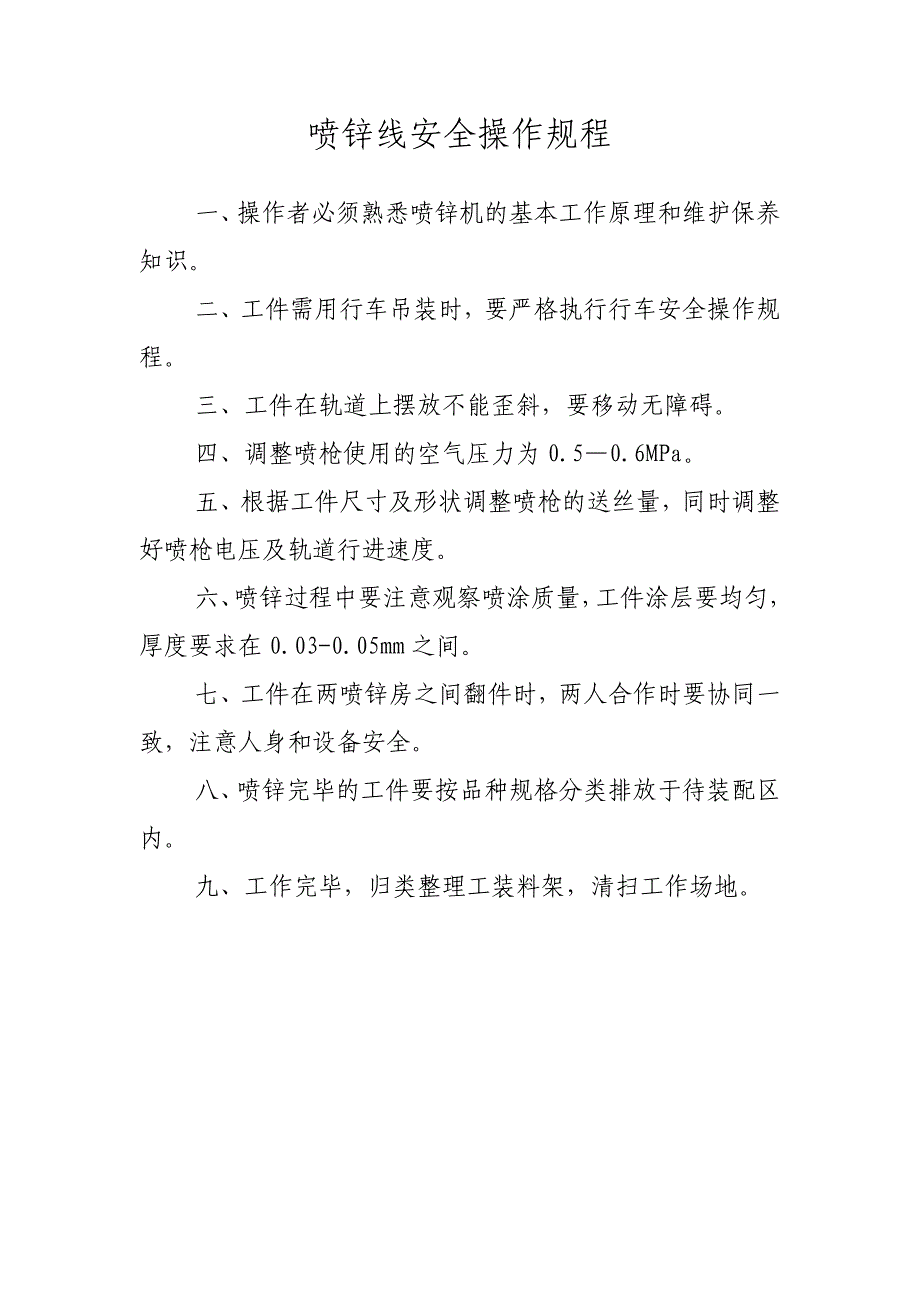 喷锌线安全操作规程
一、操作者必须熟悉喷锌机的基本工作原理和维护保养
知识。
二、工件需用行车吊装时，要严格执行行车安全操作规
程。
三、工件在轨道上摆放不能歪斜，要移动无障碍。
四、调整喷枪使用的空气压力为 0.5—0.6MPa。
五、根据工件尺寸及形状调整喷枪的送丝量，同时调整
好喷枪电压及轨道行进速度。
六、喷锌过程中要注意观察喷涂质量，工件涂层要均匀，
厚度要求在 0.03-0.05mm 之间。
七、工件在两喷锌房之间翻件时，两人合作时要协同一
致，注意人身和设备安全。
八、喷锌完毕的工件要按品种规格分类排放于待装配区
内。
九、工作完毕，归类整理工装料架，清扫工作场地。